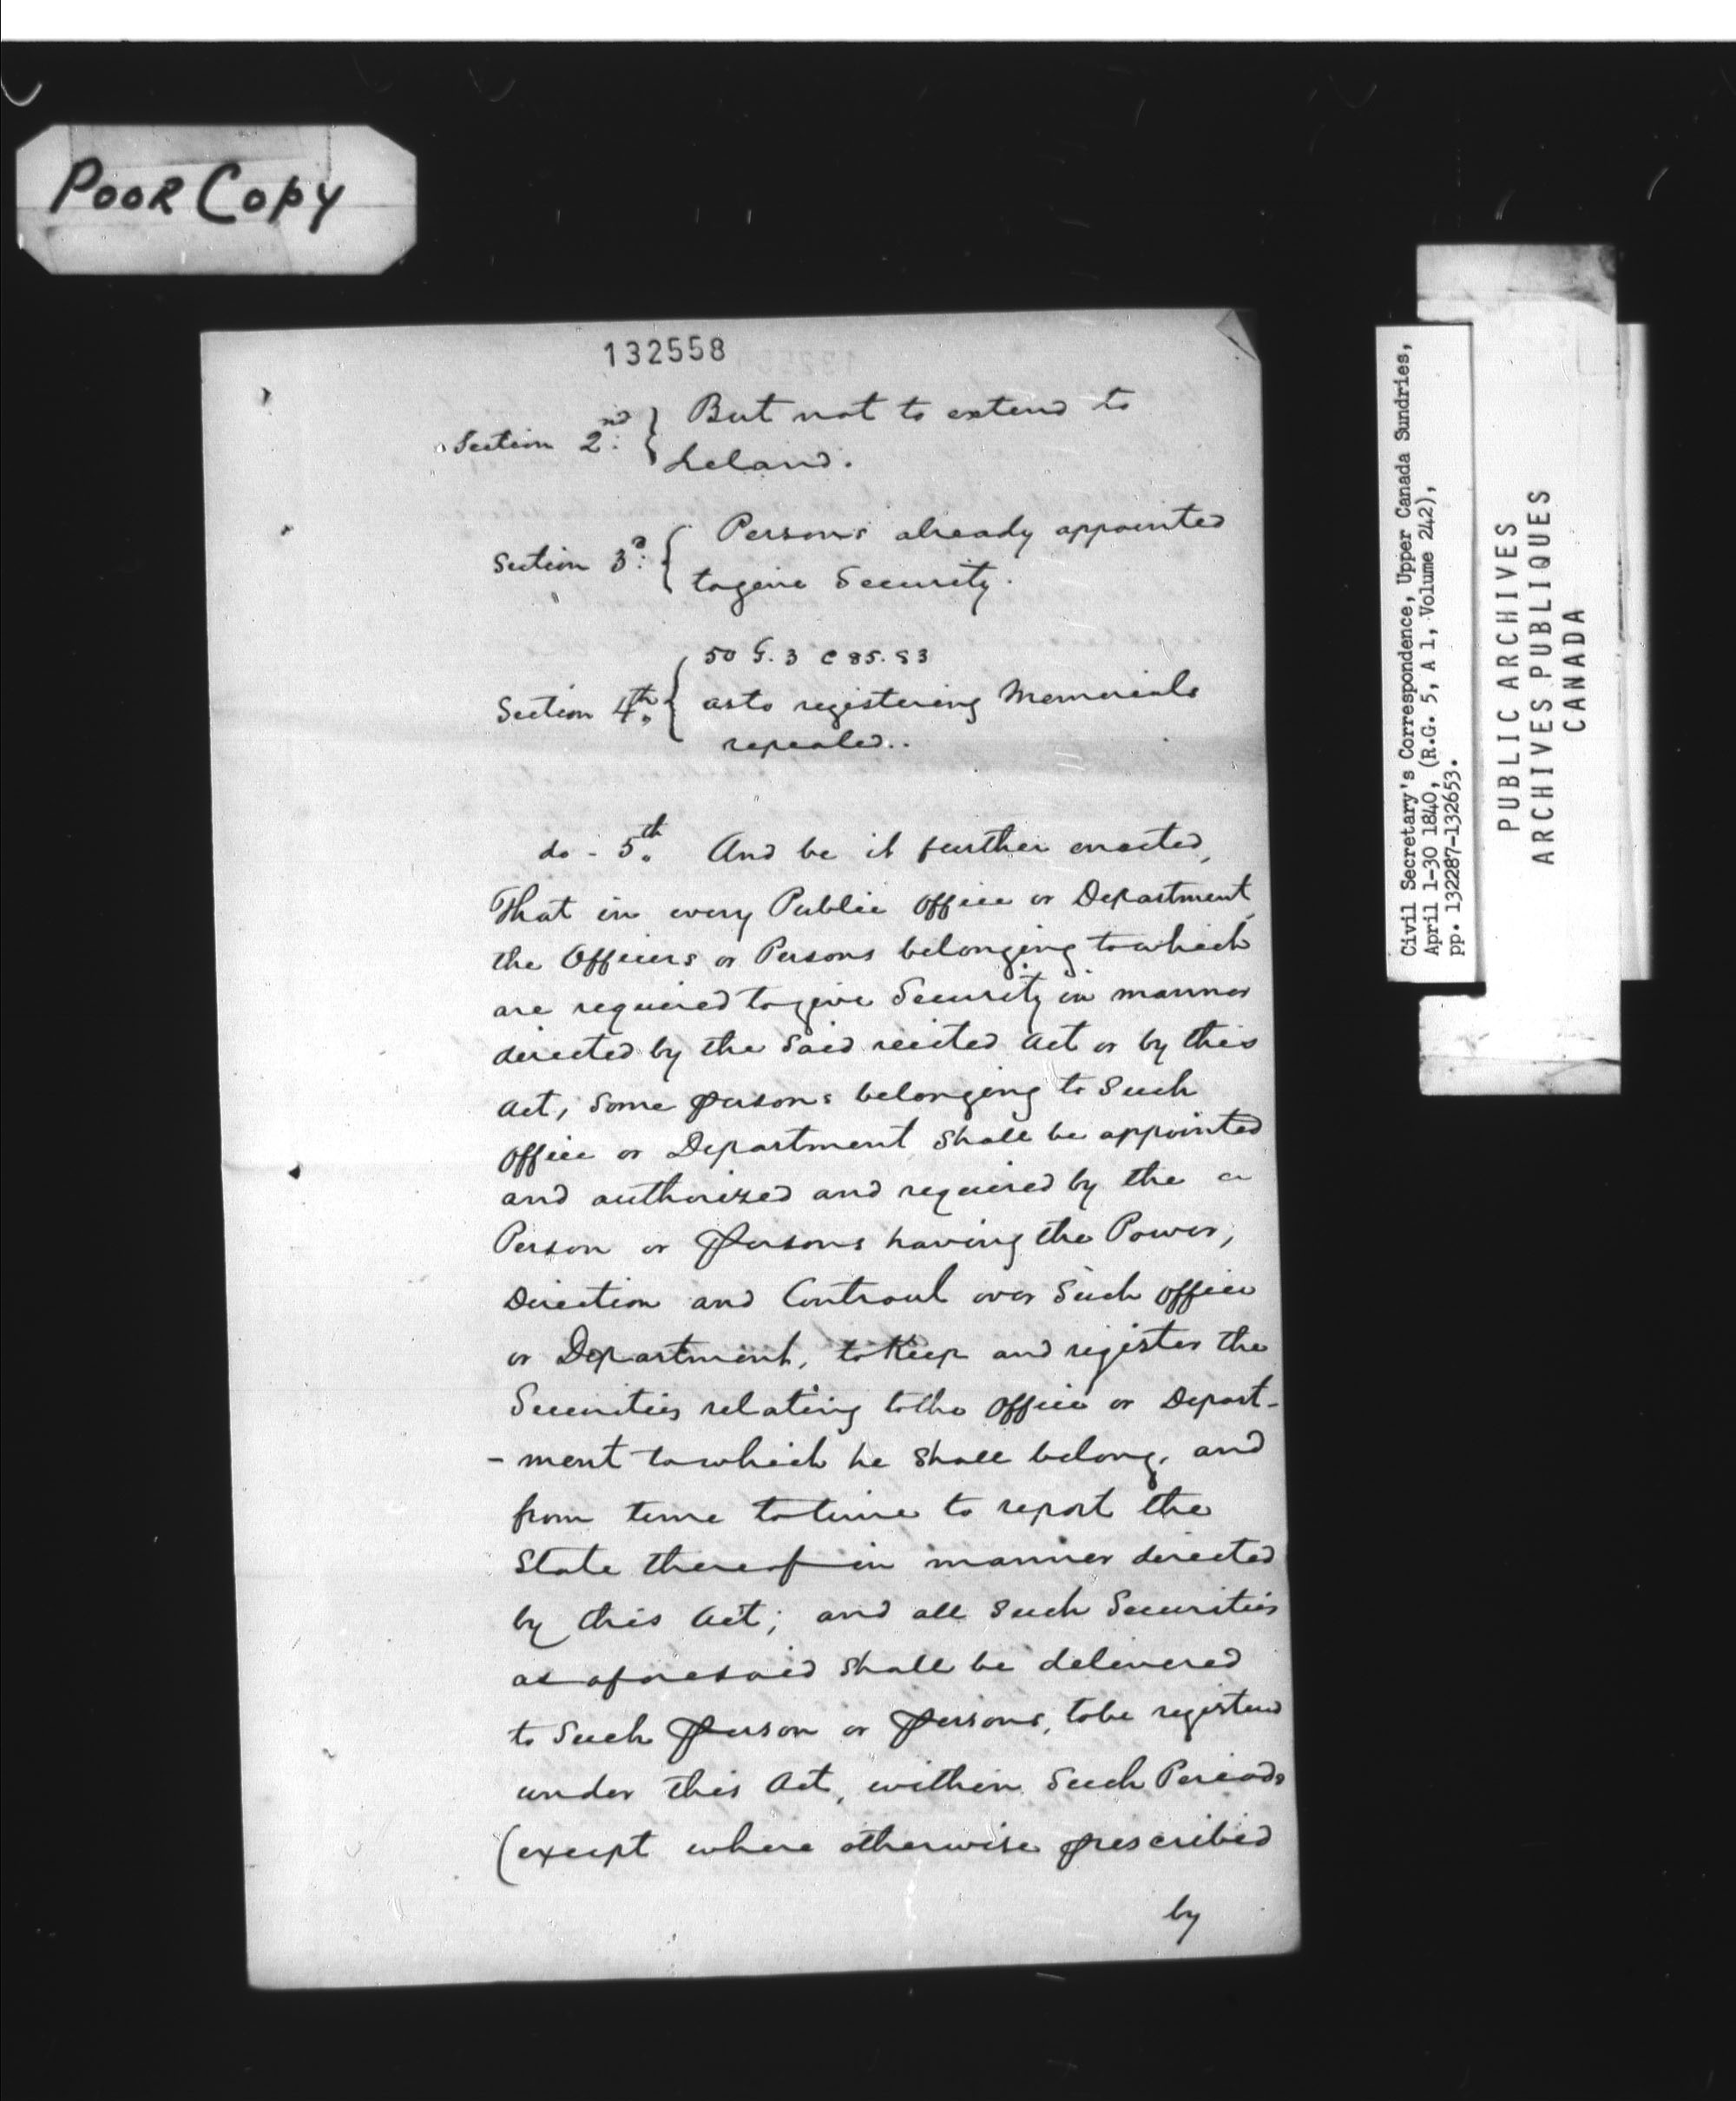 POOR COPY
132558
Section 2nd. { But not to extend to
Ireland.
Section 3d. { Persons already appointed
to give Security.
50 G. 3 C 85. S 3
Section 4th. { as to registering Memorials
repealed..
do - 5th. And be it further enacted,
That in every Public Office or Department,
the Officers or Persons belonging to which
are required to give Security in manner
directed by the Said recited Act or by this
Act, Some persons belonging to Such
Office or Department Shall be appointed
and authorized and required by the
Person or Persons having the Power,
Direction and Controul over Such Office
or Department, to Keep and register the
Securities relating to the Office or Depart-
- ment to which he Shall belong, and
from time to time to report the
State thereof in manner directed
by this Act; and all Such Securities
as aforesaid Shall be delivered
to Such Person or Persons, to be registered
under this Act, within Such Periods
(except where otherwise prescribed
by
Civil Secretary's Correspondence, Upper Canada Sundries,
April 1-30 1840, (R.G. 5, A 1, Volume 242),
pp. 132287-132653.
PUBLIC ARCHIVES
ARCHIVES PUBLIQUES
CANADA